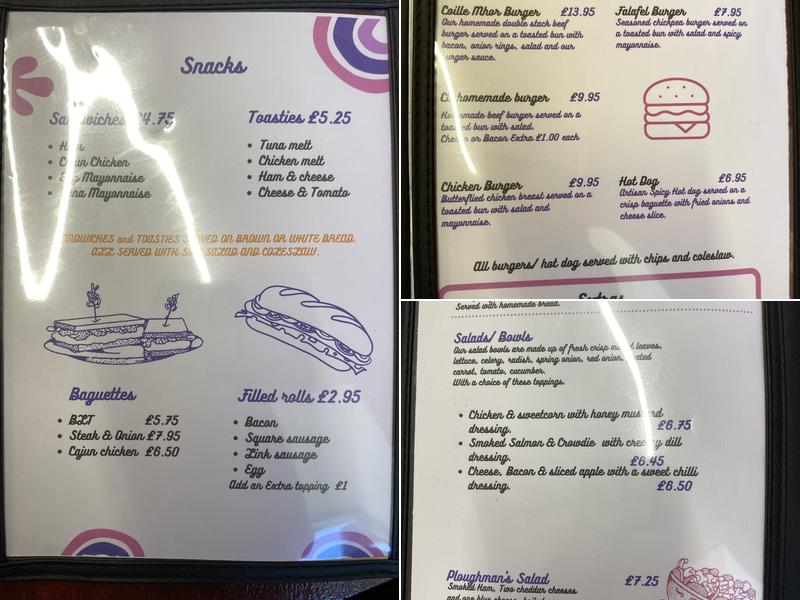 Snacks
Sandwiches £4.75
Ham
Cajun Chicken
Egg Mayonnaise
Tuna Mayonnaise
Toasties £5.25
Tuna melt
Chicken melt
Ham & cheese
Cheese & Tomato
SANDWICHES and TOASTIES SERVED ON BROWN OR WHITE BREAD.
ALL SERVED WITH SIDE SALAD AND COLESLAW.
Baguettes
BLT £5.75
Steak & Onion £7.95
Cajun chicken £6.50
Filled rolls £2.95
Bacon
Square sausage
Link sausage
Egg
Add an Extra topping £1
Coille Mhor Burger £13.95
Our homemade double stack beef
burger served on a toasted bun with
bacon, onion rings, salad and our
burger sauce.
Falafel Burger £7.95
Seasoned chickpea burger served on
a toasted bun with salad and spicy
mayonnaise.
homemade burger £9.95
Homemade beef burger served on a
toasted bun with salad.
Cheese or Bacon Extra £1.00 each
Chicken Burger £9.95
Butterflied chicken breast served on a
toasted bun with salad and
mayonnaise.
Hot Dog £6.95
Artisan Spicy Hot dog served on a
crisp baguette with fried onions and
cheese slice.
All burgers/ hot dog served with chips and coleslaw.
Extras
Served with homemade bread.
Salads/ Bowls
Our salad bowls are made up of fresh crisp mixed leaves,
lettuce, celery, radish, spring onion, red onion, grated
carrot, tomato, cucumber.
With a choice of these toppings.
Chicken & sweetcorn with honey mustard
dressing. £6.75
Smoked Salmon & Crowdie with creamy dill
dressing. £6.45
Cheese, Bacon & sliced apple with a sweet chilli
dressing. £6.50
Ploughman's Salad £7.25
Smoked Ham, Two cheddar cheeses